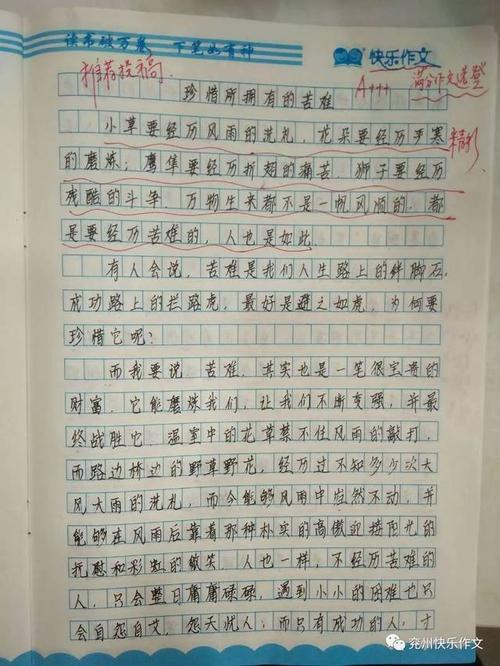 读书破万卷 下笔如有神
快乐作文
推荐投稿
A+++
满分作文选登
珍惜所拥有的苦难
小草要经历风雨的洗礼，花朵要经历严寒
精彩
的磨炼；鹰隼要经历折翅的痛苦，狮子要经历
残酷的斗争，万物生长都不是一帆风顺的，都
是要经历苦难的，人也是如此。
有人会说，苦难是我们人生路上的绊脚石，
成功路上的拦路虎，最好是避之如虎，为何要
珍惜它呢？
而我要说，苦难，其实也是一笔很宝贵的
财富，它能磨炼我们，让我们不断变强，并最
终战胜它。温室中的花草禁不住风雨的敲打，
而路边桥边的野草野花，经历过不知多少次大
风大雨的洗礼，而今能够风雨中岿然不动，并
能够在风雨后靠着那种朴实的高傲迎接阳光的
抚慰和彩虹的微笑。人也一样，不经历苦难的
人，只会整日庸庸碌碌，遇到小小的困难也只
会自怨自艾，怨天忧人；而只有成功的人，才
兖州快乐作文